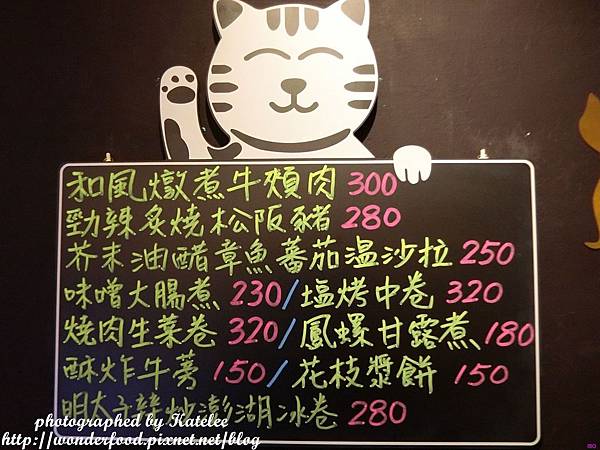 和風燉煮牛頰肉 300
勁辣炙燒松阪豬 280
芥末油醋章魚蕃茄溫沙拉 250
味噌大腸煮 230/塩烤中卷 320
燒肉生菜卷 320/鳳螺甘露煮 180
酥炸牛蒡 150/花枝漿餅 150
明太子拌炒澎湖冰卷 280
photographed by Katelee
http://wonderfood.pixnet.net/blog